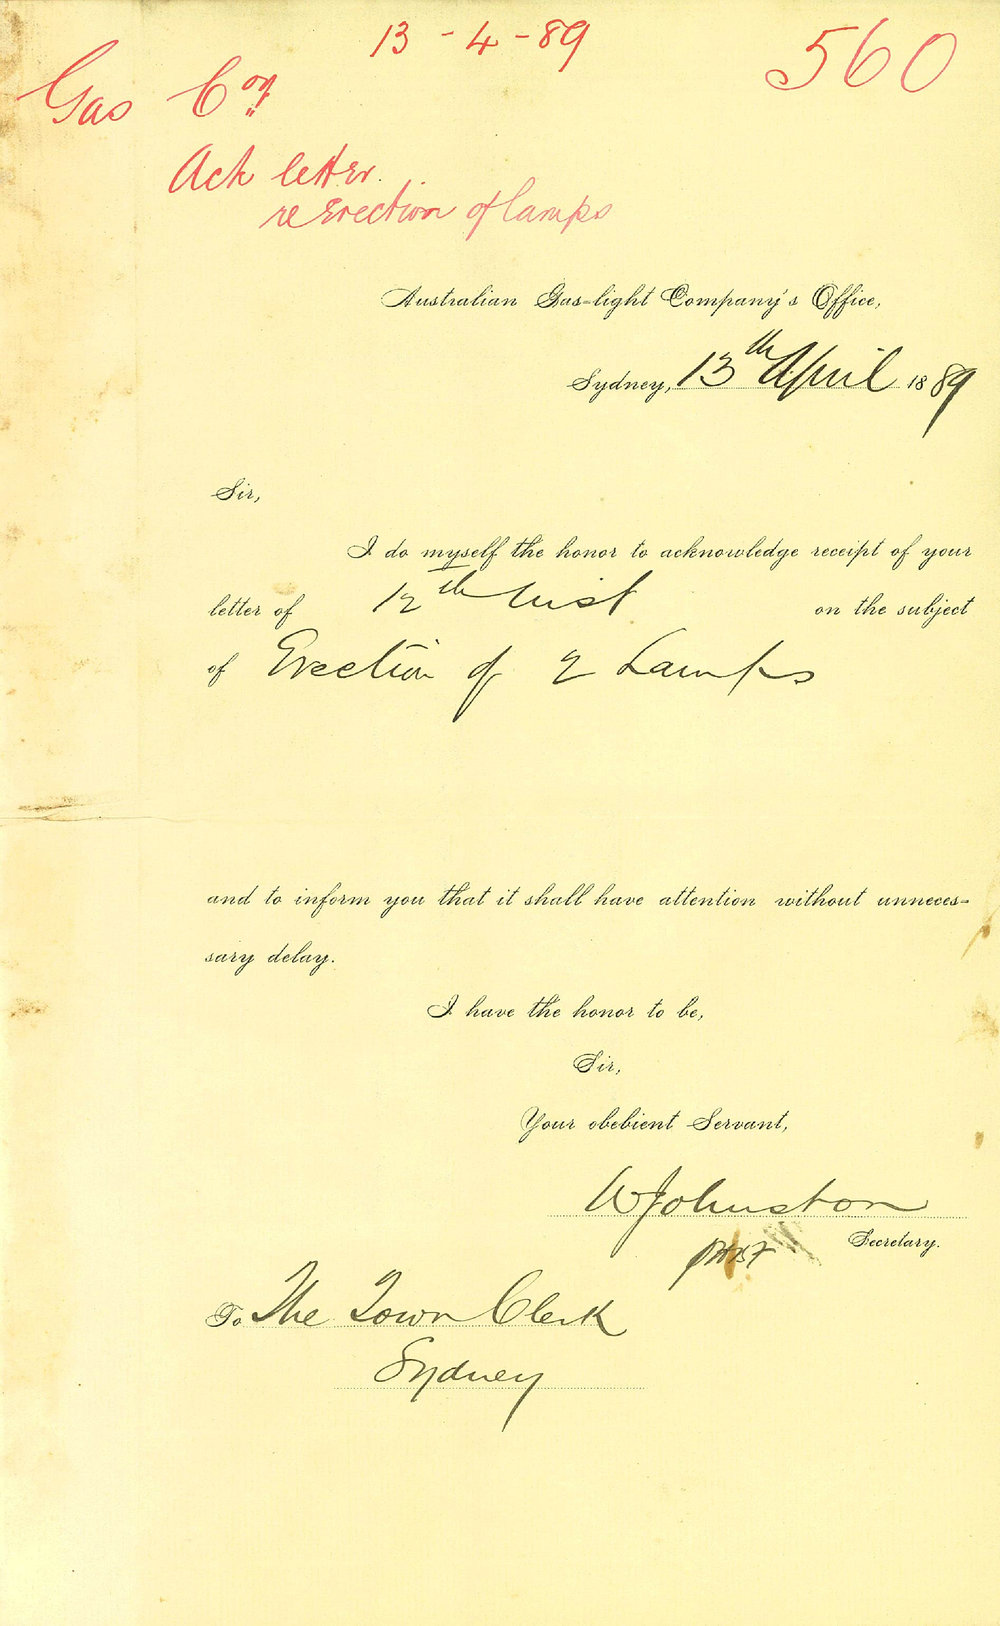 13-4-89
560
Gas Coy
Ack letter.
re Erection of lamps
Australian Gas-light Company's Office,
Sydney, 13th April 1889
Sir,
I do myself the honor to acknowledge receipt of your
letter of 12th Inst on the subject
of Erection of 2 Lamps
and to inform you that it shall have attention without unneces-
sary delay.
I have the honor to be,
Sir,
Your obebient Servant,
WJohnston
Secretary.
To The Town Clerk
Sydney